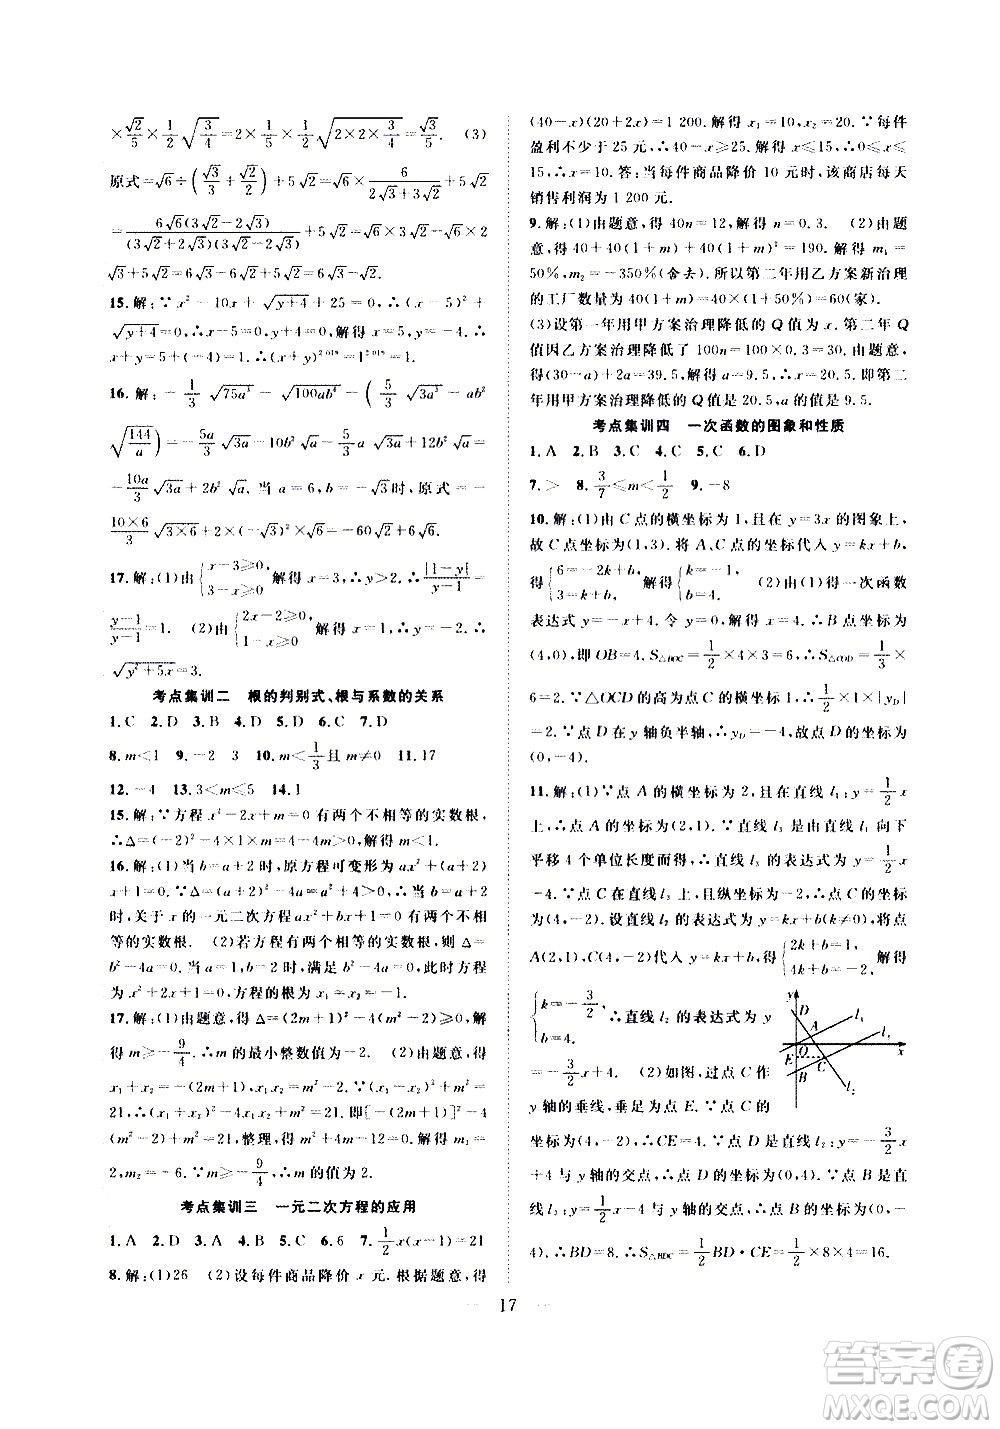 ×√2/5×1/2×√(3/4)=2×1/5×1/2×√(2×2×3/4)=√3/5. (3)
原式=√6÷(√3/3+√2/2)+5√2=√6×6/(2√3+3√2)+5√2
=6√6(3√2-2√3)/((3√2+2√3)(3√2-2√3))+5√2=6√3-6√2
√3+5√2=6√3-√2.
15.解:∵x²-10x+√(y+4)+25=0,∴(x-5)²+
√(y+4)=0,∴x-5=0,y+4=0,解得x=5,y=-4.
∴x+y=5-4=1.∴(x+y)²⁰¹⁹=1²⁰¹⁹=1.
16.解:-1/3√(75a³)-√(100ab²)-(5/3√(3a³)-4b²
√(144/a))=-5a/3√(3a)-10b√a-5a/3√(3a)+12b²√a=
-10a/3√(3a)+2b²√a.当a=6,b=-√3时,原式=-
10×6/3√(3×6)+2×(-√3)²×√6=-60√2+6√6.
17.解:(1)由{x-3≥0, 3-x≥0,解得x=3.∴y>2.∴|1-y|/(y-1)=
(y-1)/(y-1)=1. (2)由{2x-2≥0, 1-x≥0,解得x=1.∴y=-2.∴
√(y²+5x)=3.
考点集训二 根的判别式、根与系数的关系
1.C 2.D 3.B 4.D 5.D 6.C 7.D
8.m<1 9.-2 3 10.m<1/3且m≠0 11.17
12.-4 13.3<m≤5 14.1
15.解:∵方程x²-2x+m=0有两个不相等的实数根,
∴Δ=(-2)²-4×1×m=4-4m>0,解得m<1.
16.解:(1)当b=a+2时,原方程可变形为ax²+(a+2)
x+1=0.∵Δ=(a+2)²-4a=a²+4>0,∴当b=a+2
时,关于x的一元二次方程ax²+bx+1=0有两个不相
等的实数根. (2)若方程有两个相等的实数根,则Δ=
b²-4a=0.当b=2,a=1时,满足b²-4a=0,此时方程
为x²+2x+1=0,方程的根为x₁=x₂=-1.
17.解:(1)由题意,得Δ=(2m+1)²-4(m²-2)≥0,解
得m≥-9/4.∴m的最小整数值为-2. (2)由题意,得
x₁+x₂=-(2m+1),x₁x₂=m²-2.∵(x₁-x₂)²+m²=
21,∴(x₁+x₂)²-4x₁x₂+m²=21.即[-(2m+1)]²-4
(m²-2)+m²=21,整理,得m²+4m-12=0.解得m₁=
2,m₂=-6.∵m≥-9/4,∴m的值为2.
考点集训三 一元二次方程的应用
1.A 2.D 3.A 4.B 5.C 6.6 7.1/2x(x-1)=21
8.解:(1)26 (2)设每件商品降价x元.根据题意,得
(40-x)(20+2x)=1 200.解得x₁=10,x₂=20.∵每件
盈利不少于25元,∴40-x≥25.∴x≤15.∵0≤x≤
15,∴x=10.答:当每件商品降价10元时,该商店每天
销售利润为1 200元.
9.解:(1)由题意,得40n=12,解得n=0.3. (2)由题
意,得40+40(1+m)+40(1+m)²=190.解得m₁=
50%,m₂=-350%(舍去).所以第二年用乙方案新治理
的工厂数量为40(1+m)=40×(1+50%)=60(家).
(3)设第一年用甲方案治理降低的Q值为x.第二年Q
值因乙方案治理降低了100n=100×0.3=30.由题意,
得(30-a)+2a=39.5,解得a=9.5,x=20.5.∴第二
年用甲方案治理降低的Q值是20.5,a的值是9.5.
考点集训四 一次函数的图象和性质
1.A 2.B 3.C 4.C 5.C 6.D
7.> 8.3/7≤m<1/2 9.-8
10.解:(1)由C点的横坐标为1,且在y=3x的图象上,
故C点坐标为(1,3).将A、C点的坐标代入y=kx+b,
得{6=-2k+b, 3=k+b,解得{k=-1, b=4. (2)由(1)得一次函数
表达式为y=-x+4.令y=0,解得x=4.∴点B坐标为
(4,0),即OB=4.S△BOC=1/2×4×3=6.S△COD=1/3×
6=2.∵△OCD的高为点C的横坐标,∴1/2×1×|yD|
=2.∵点D在y轴负半轴,∴yD=-4.故点D的坐标为
(0,-4).
11.解:(1)∵点A的横坐标为2,且在直线l₁:y=1/2x
上,∴点A的坐标为(2,1).∵直线l₃由直线l₁向下
平移4个单位长度而得,∴直线l₃的表达式为y=1/2x
-4.∵点C在直线l₃上,且纵坐标为-2,∴点C的坐标为
(4,-2).设直线l₂的表达式为y=kx+b(k≠0),将点
A(2,1),C(4,-2)代入y=kx+b,得{2k+b=1, 4k+b=-2. 解得
{k=-3/2, b=4. ∴直线l₂的表达式为y
=-3/2x+4. (2)如图,过点C作
y轴的垂线,垂足为点E.∵点C的
坐标为(4,-2),∴CE=4.∵点D是直线l₂:y=-3/2x
+4与y轴的交点,∴点D的坐标为(0,4).∵点B是直
线l₃:y=1/2x-4与y轴的交点,∴点B的坐标为(0,
-4).∴BD=8.S△BDC=1/2BD·CE=1/2×8×4=16.
y D A l₁ l₃ E O C x B l₂
17
答案圈
MXQE.COM